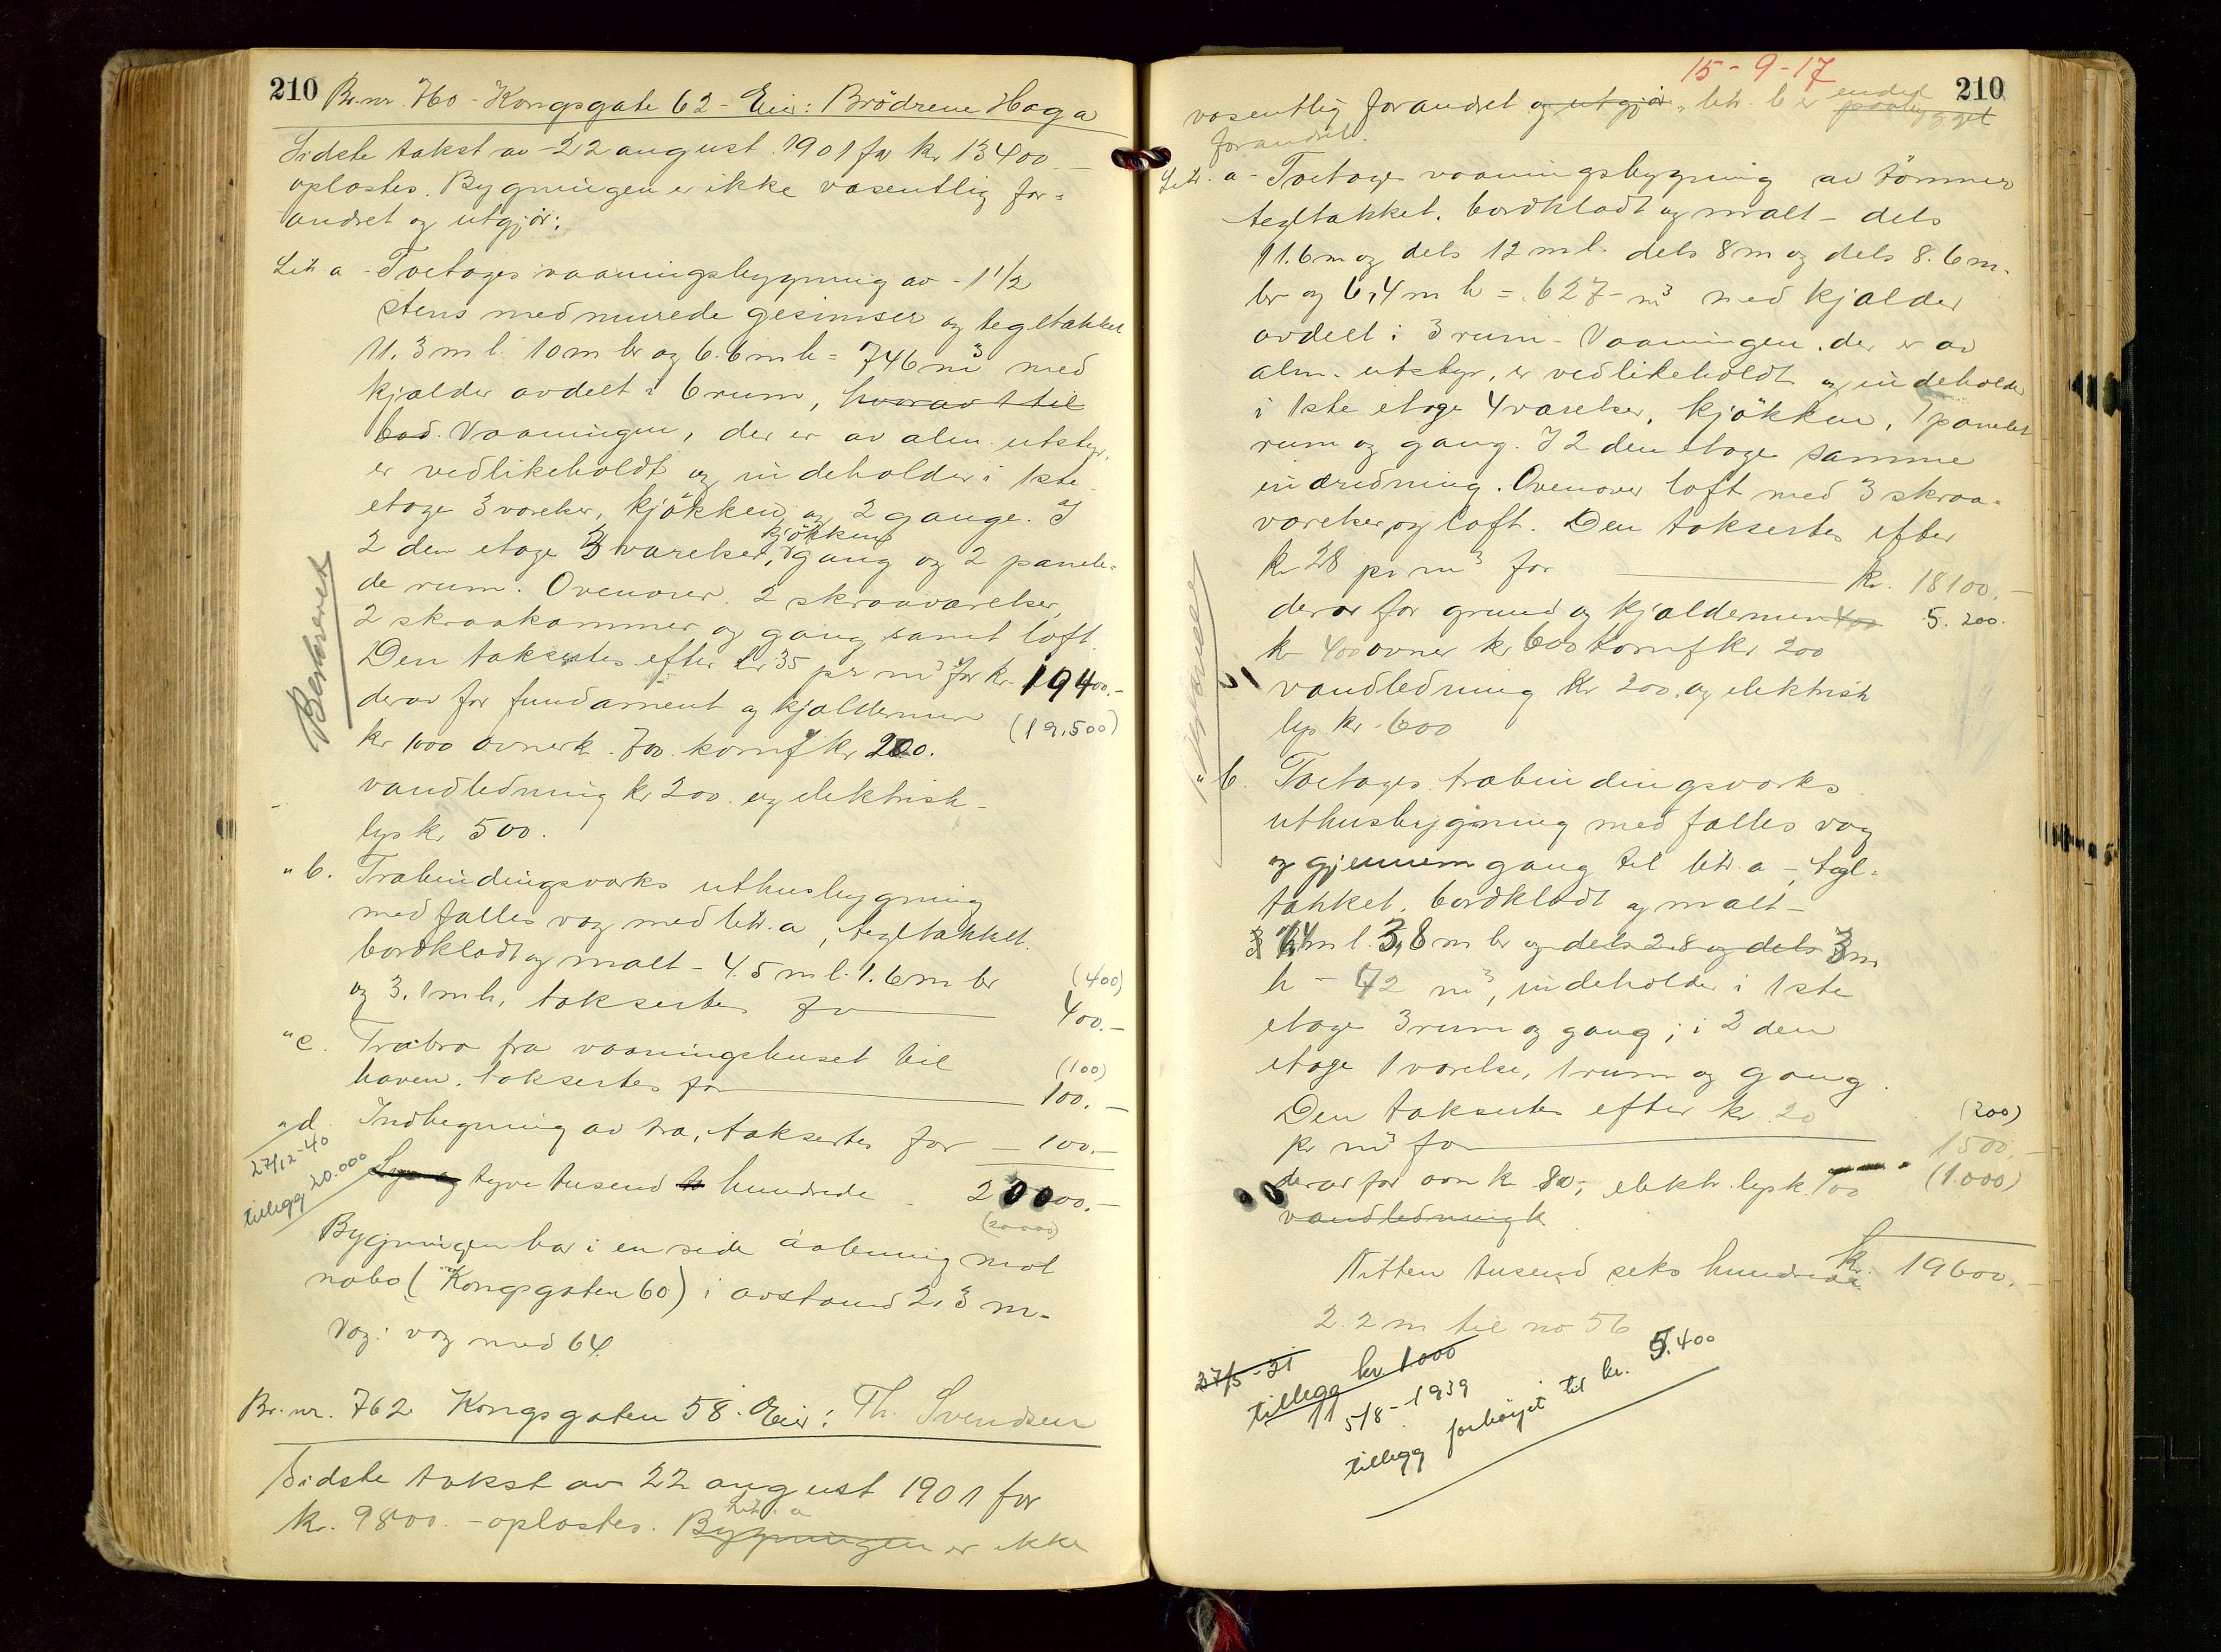 210 Br.nr. 760 - Kongsgate 62 - Eier: Brödrene Haga
Sidste takst av 22 august 1901 for kr 13400.-
oplæstes. Bygningen er ikke væsentlig for=
andret og utgjör:
Litr. a - Toetages vaaningsbygning av - 1 1/2
stens med murede gesimser og tegltækket
11.3 m l. 10 m br og 6.6 m h = 746 m3 med
kjælder avdelt i 6 rum, hvorav 1 til
bad. Vaaningen, der er av alm. utstyr,
er vedlikeholdt og indeholder i 1ste
etage 3 værelser, kjökken og 2 gange. I
kjökken
2 den etage 3 værelser, gang og 2 panele=
de rum. Ovenover 2 skraaværelser,
2 skraakammer og gang samt loft.
Den taksertes efter kr 35 pr m3 for kr. 19400.-
derav for fundament og kjældermur (19.500)
kr 1000 ovner k. 700. komf kr 200.
vandledning kr 200. og elektrisk
lys kr 500.
Beskrevet
" b. Træbindingsverks uthusbygning
med fælles væg med litr. a, tegltækket.
bordklædt og malt - 4.5 m l. 1.6 m br (400)
og 3.1 m h, taksertes for 400.-
" c. Træbro fra vaaningshuset til (100)
haven. taksertes for 100.-
" d. Indhegning av træ, taksertes for - 100.-
27/12-40
tillegg 20.000
tyve tusend to hundrede - 20000.-
(20000)
Bygningen har i en side aabning mot
nabo (Kongsgaten 60) i avstand 2,3 m.
Væg i væg med 64.
Br.nr. 762 Kongsgaten 58. Eier: Th. Svendsen
Sidste takst av 22 august 1901 for
Litr. a
kr. 9800. - oplæstes. Bygningen er ikke
15-9-17
210
væsentlig forandret og utgjör " litr. b er endel paabygget
forandret.
Litr. a - Toetages vaaningsbygning av tömmer
tegltækket. bordklædt og malt - dels
11.6 m og dels 12 m l. dels 8 m og dels 8.6 m.
br og 6,4 m h = 627 - m3 med kjælder
avdelt i 3 rum - Vaaningen. der er av
alm. utstyr, er vedlikeholdt og indeholder
i 1ste etage 4 værelser, kjökken, 1 panelet
rum og gang. I 2 den etage samme
indredning. Ovenover loft med 3 skraa=
værelser og loft. Den taksertes efter
kr 28 pr m3 for kr. 18100.-
derav for grund og kjældermur 400 5.200.
kr 400 ovner kr 600 komf kr 200
vandledning kr 200. og elektrisk
lys. kr. 600
" b. Toetages træbindingsværks
uthusbygning med fælles væg
og gjennemgang til litr. a -, tegl=
tækket. bordklædt og malt -
6,4 m l. 3,8 m br og dels 2.8 og dels 3 m
h - 72 m3, indeholder i 1ste
etage 3 rum og gang; i 2 den
etage 1 værelse, 1 rum og gang.
Den taksertes efter kr. 20 (200)
pr m3 for 1500.-
derav for ovn kr 80,- elektr. lys k. 100 (1.000)
vandledning k
Nitten tusend seks hundrede kr. 19600.-
2.2 m til no 56
27/5-21
tillegg kr 1000
5/8-1939
tillegg forhöiet til kr. 5.400